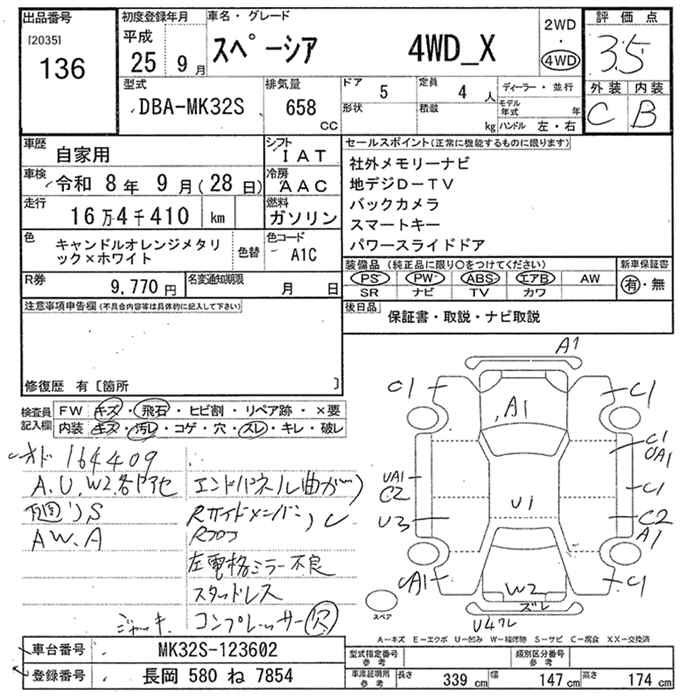 出品番号 初度登録年月 車名・グレード 2WD 評価点
[2035] 平成 スペーシア 4WD_X 4WD 3.5
136 25年 9月
型式 排気量 ドア 5 定員 4人 ディーラー・並行 外装 内装
DBA-MK32S 658 cc 形状 積載 kg モデル年式 年 C B
ハンドル 左・右
車歴 自家用 シフト IAT セールスポイント(正常に機能するものに限ります)
車検 令和 8年 9月(28日) 冷房 AAC 社外メモリーナビ
走行 16万4千410 km 燃料 ガソリン 地デジD-TV
バックカメラ
色 キャンドルオレンジメタリック×ホワイト 色替 色コード A1C スマートキー
パワースライドドア
R券 9,770円 名変通知期限 月 日 装備品(純正品に限り○をつけてください) 新車保証書
PS PW ABS エアB AW 有・無
SR ナビ TV カワ
注意事項申告欄(不具合内容等は具体的に記入して下さい) 後日品 保証書・取説・ナビ取説
修復歴 有[箇所 ]
検査員記入欄 FW キズ・飛石・ヒビ割・リペア跡・×要
内装 キズ・汚レ・コゲ・穴・スレ・キレ・破レ
164409
A.U.W2各所 エンドパネル曲がり
S RサイドメンバーC
AW.A Rフロア
左電格ミラー不良
スタッドレス
ジャッキ コンプレッサー 欠
A1
C1 C1
A1
C1
UA1
UA1
C2 C1
U1
U3 C2
A1
A1 C1
W2
ズレ
U4ワレ
スペア
A-キズ E-エクボ U-凹み W-補修物 S-サビ C-腐食 XX-交換済
車台番号 MK32S-123602 型式指定番号 参考 類別区分番号 参考
登録番号 長岡 580 ね 7854 車庫証明用 参考 長さ 339 cm 幅 147 cm 高さ 174 cm